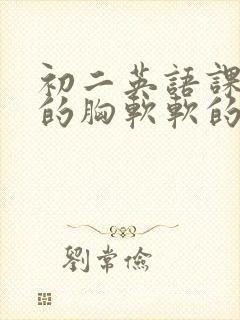 初二英語課
的胸軟軟的
劉常儉